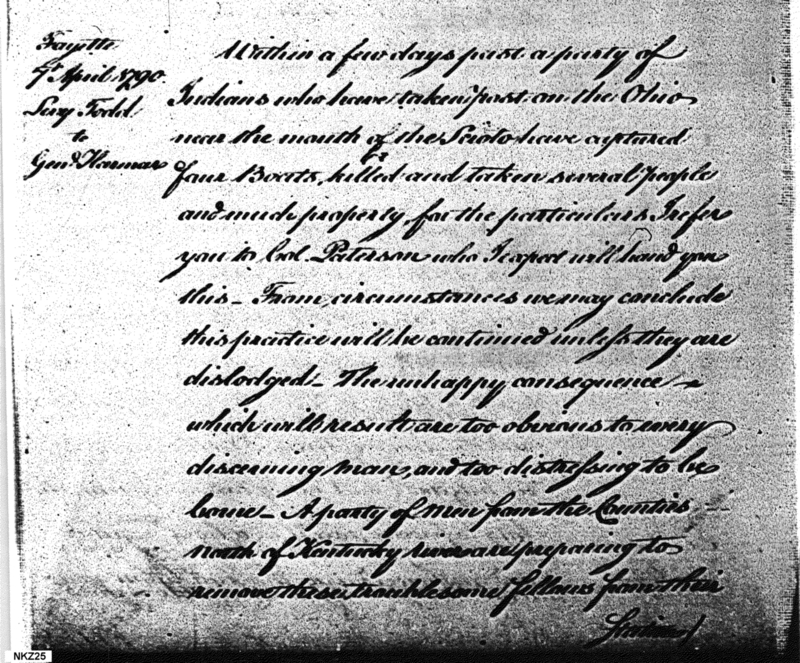 Fayette
7th April 1790
Levy Todd
to
Genl. Harmar
Within a few days past a party of
Indians who have taken post on the Ohio
near the mouth of the Scioto have captured
four Boats, killed and taken several people
and much property, for the particulars I refer
you to Col. Paterson who I expect will hand you
this – From circumstances we may conclude
this practice will be continued unless they are
dislodged – The unhappy consequence
which will result are too obvious to every
discerning man, and too distressing to be
borne – A party of Men from the Counties
north of Kentucky river are preparing to
remove these troublesome fellows from their
Stations/
NKZ25